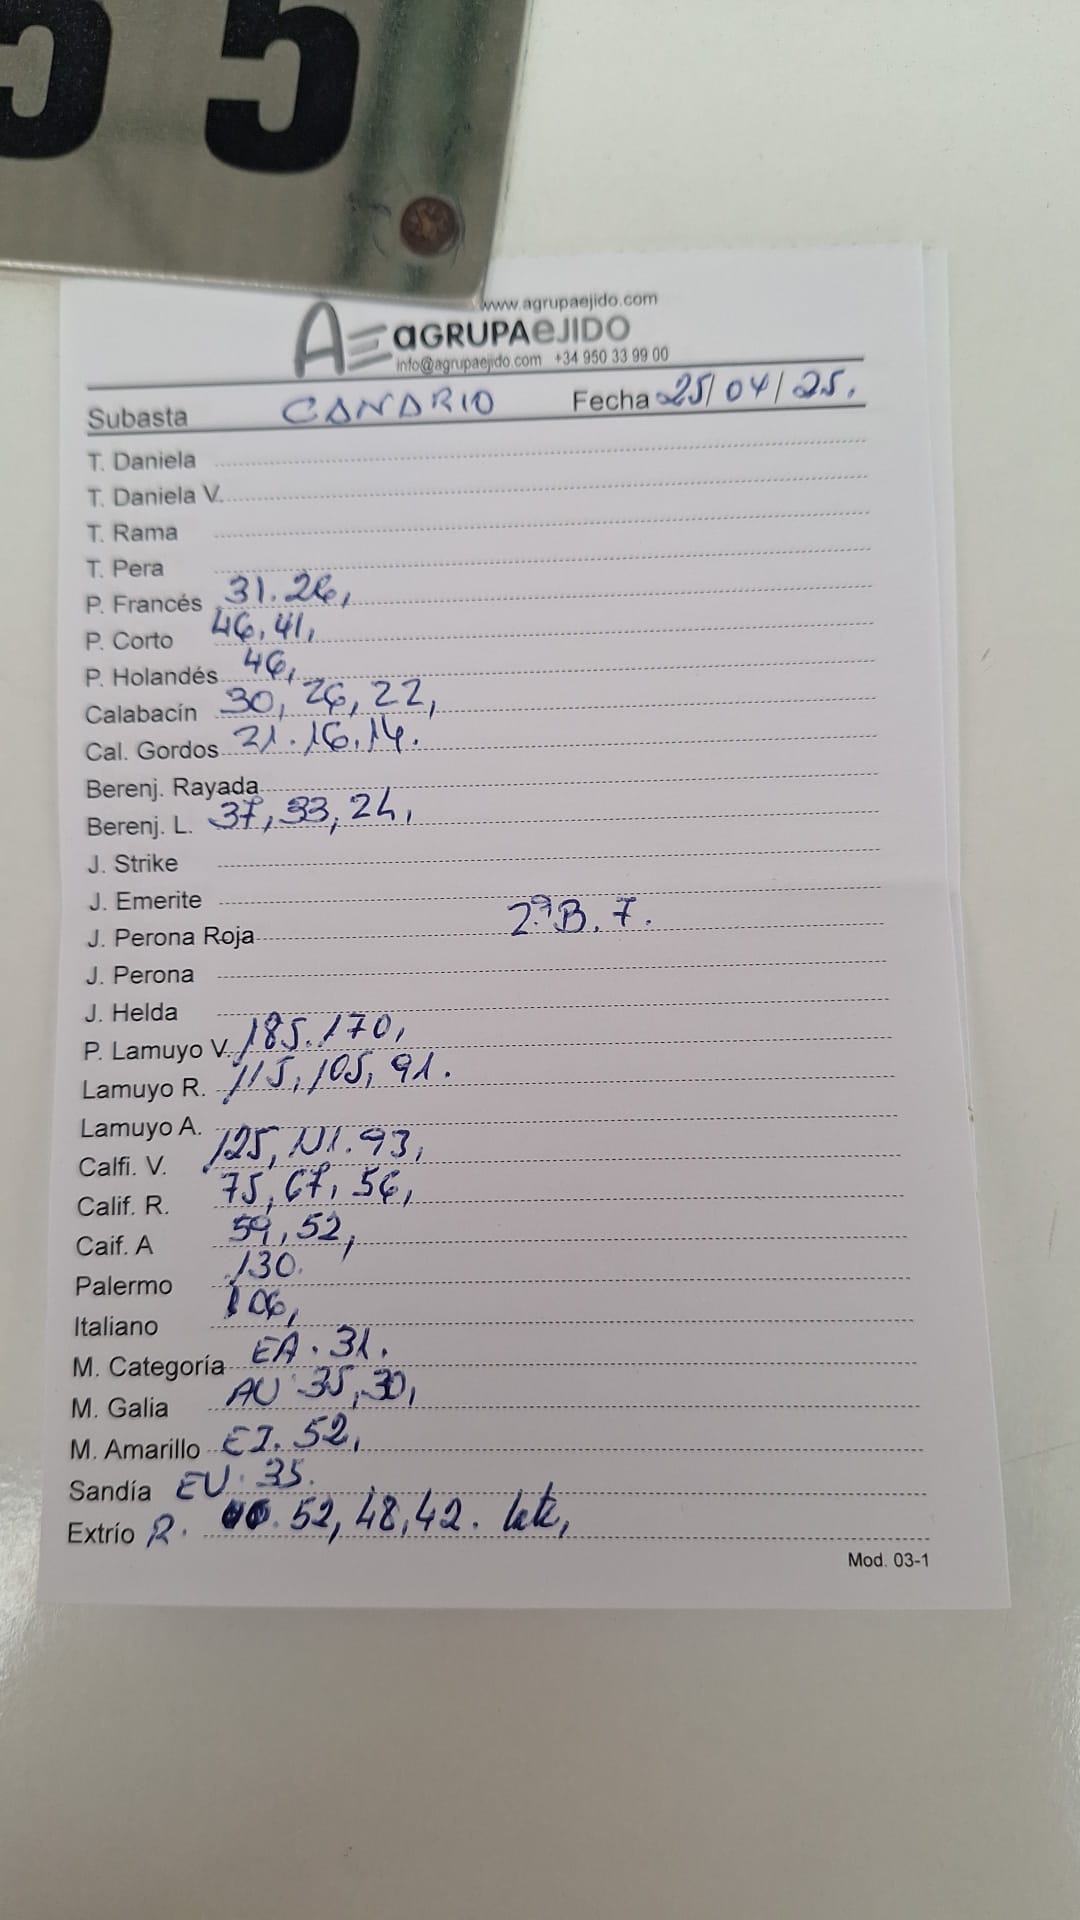 55
www.agrupaejido.com
AE aGRUPAeJIDO
info@agrupaejido.com +34 950 33 99 00
Subasta CANARIO Fecha 25/04/25.
T. Daniela
T. Daniela V.
T. Rama
T. Pera
P. Francés 31.26,
P. Corto 46,41,
P. Holandés 46,
Calabacín 30, 26, 22,
Cal. Gordos 21.16.14.
Berenj. Rayada
Berenj. L. 37, 33, 24,
J. Strike
J. Emerite
J. Perona Roja 2ªB. 7.
J. Perona
J. Helda
P. Lamuyo V. 185.170,
Lamuyo R. 115, 105, 91.
Lamuyo A.
Calfi. V. 125, 111. 93,
Calif. R. 75, 67, 56,
Caif. A 59, 52,
Palermo 130.
Italiano 106,
M. Categoría EA. 31.
M. Galia AU 35, 30,
M. Amarillo EJ. 52,
Sandía EU. 35.
Extrío R. 52, 48, 42.
Mod. 03-1